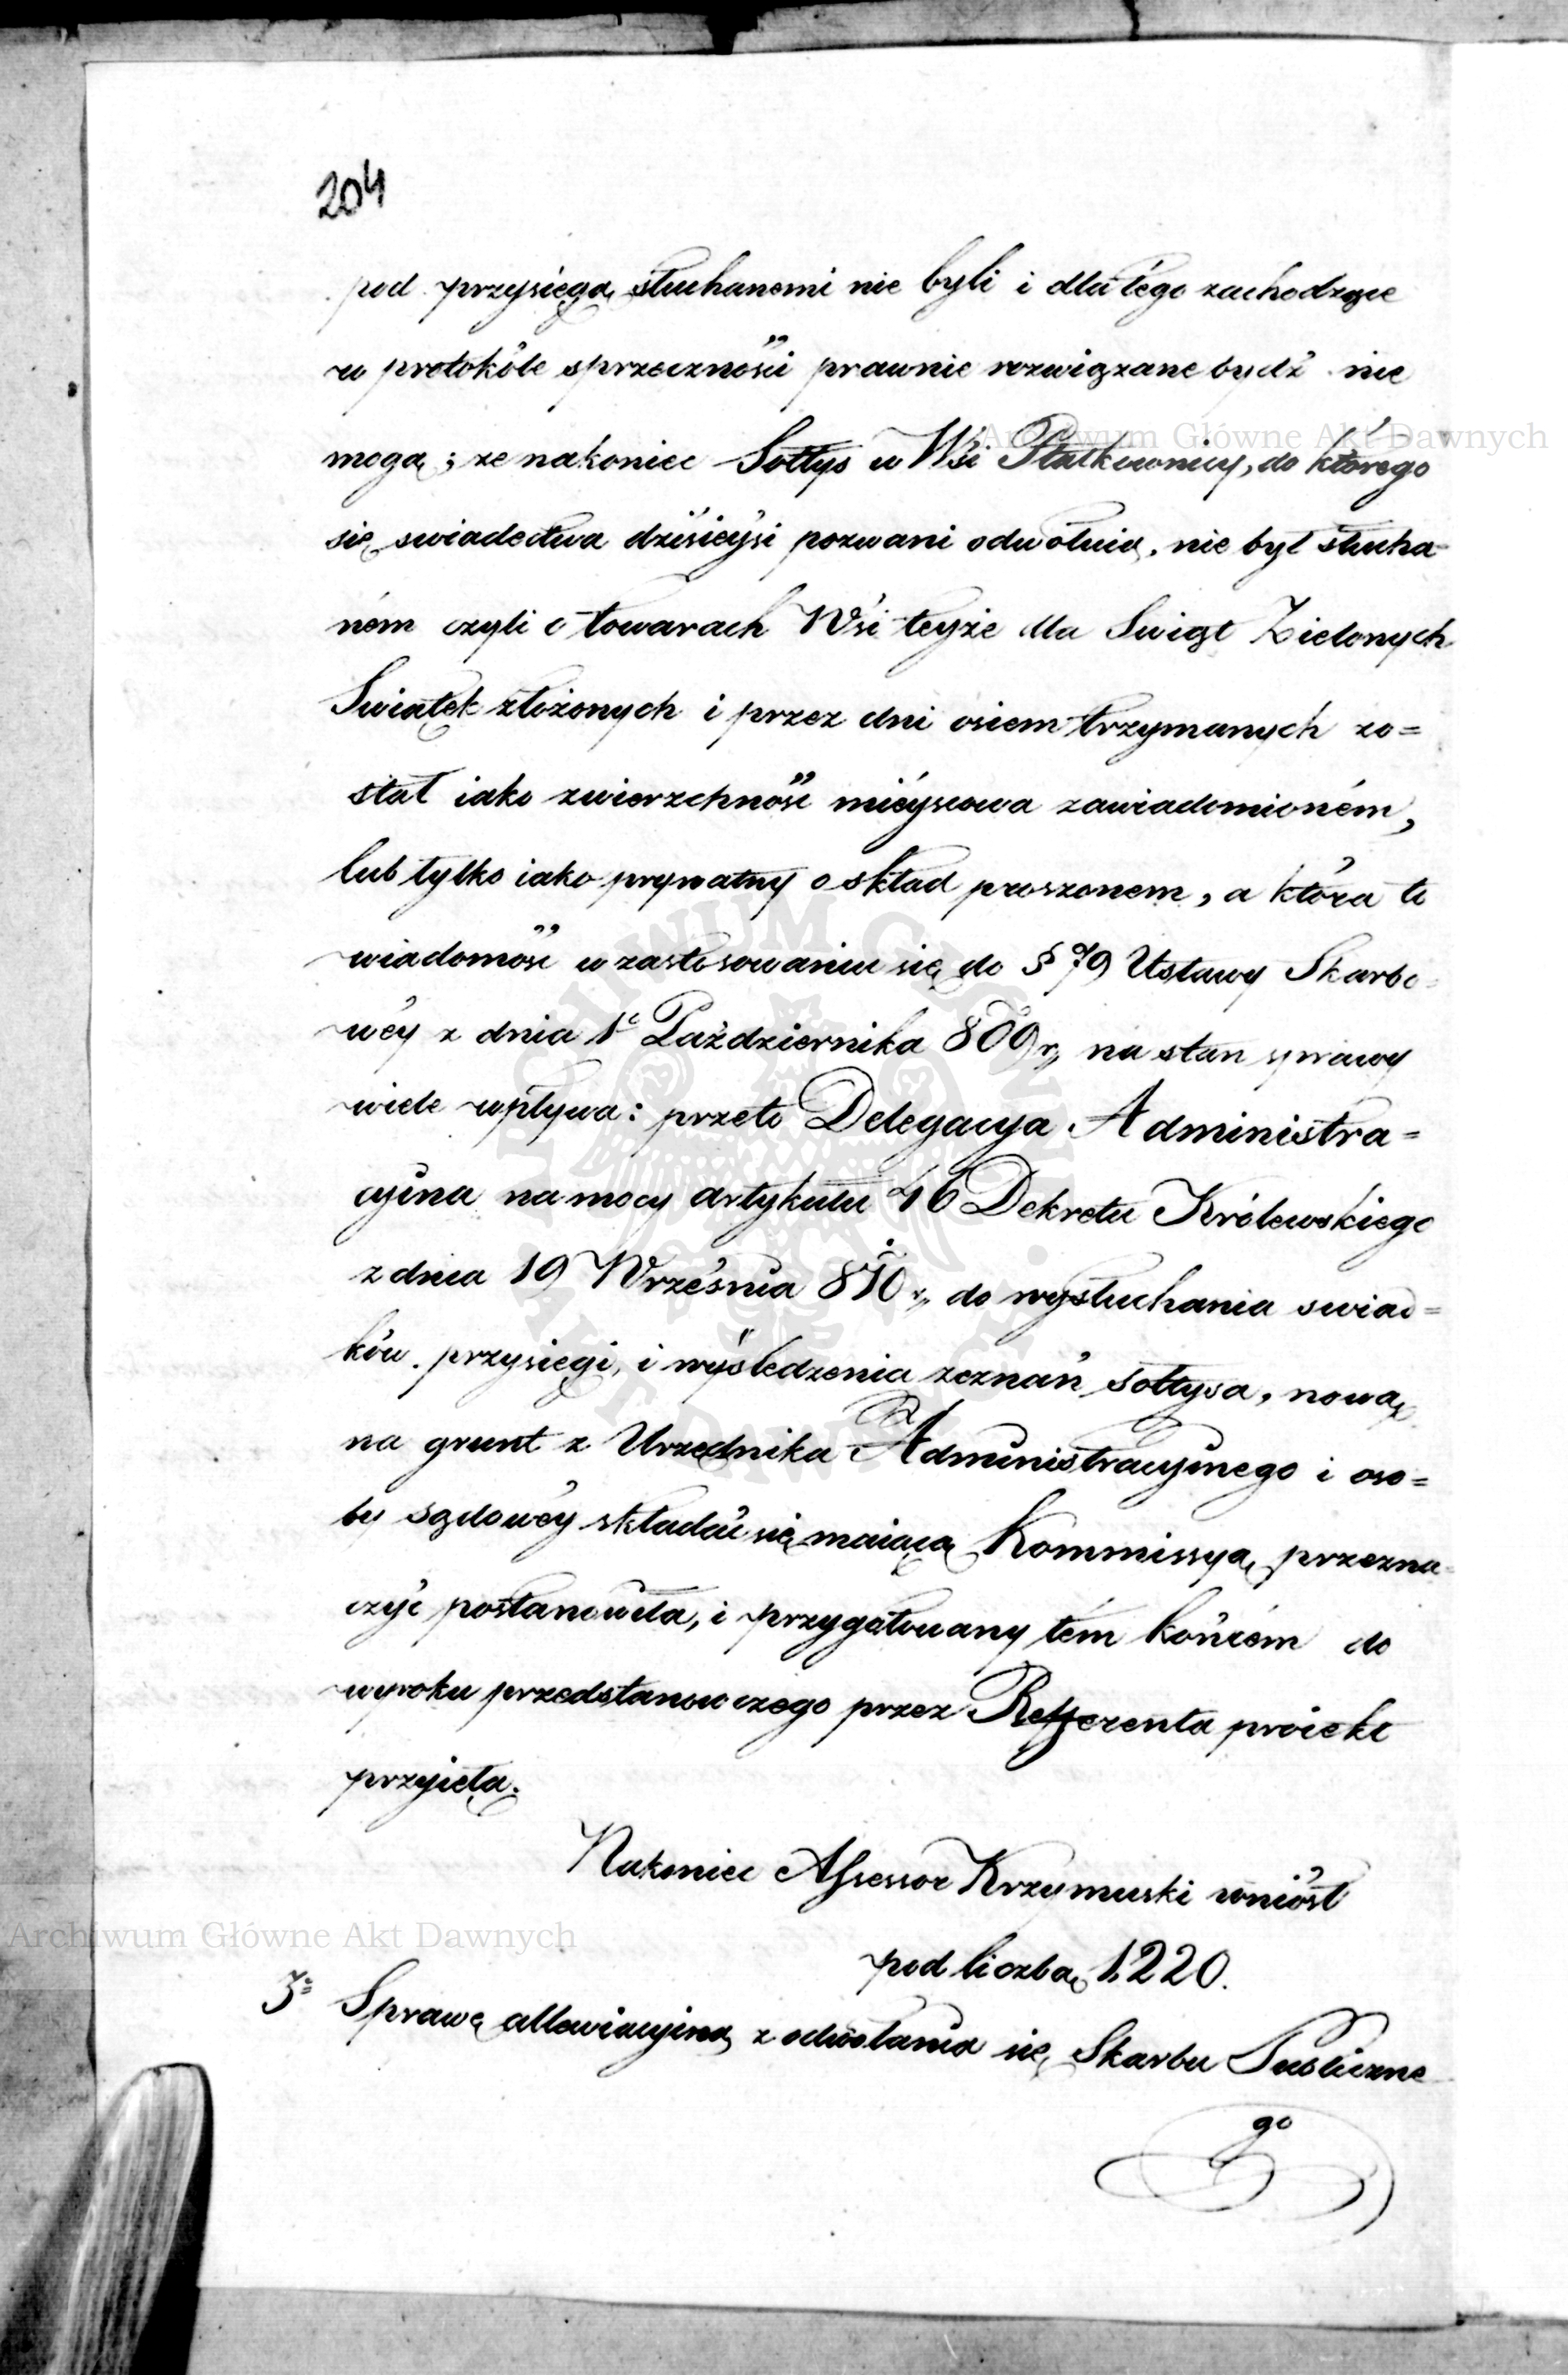 204
pod przysięgą słuchanemi nie byli i dla tego zachodzące
w protokóle sprzeczności prawnie rozwiązane bydź nie
mogą; że nakoniec Sołtys w Wsi Płatkownicy, do którego
się swiadectwa dzisieysi pozwani odwołuią, nie był słucha-
ném czyli o towarach Wsi teyże dla Swiąt Zielonych
Swiątek złożonych i przez dni osiem trzymanych zo=
stał iako zwierzchność mieyscowa zawiadomioném,
lub tylko iako prywatny o skład proszonem, a która to
wiadomość w zastosowaniu się do § 79 Ustawy Skarbo=
wéy z dnia 1o Października 809 r. na stan sprawy
wiele wpływa: przeto Delegacya Administra=
cyina na mocy artykułu 46 Dekretu Królewskiego
z dnia 19 Września 810 r. do wysłuchania swiad=
ków przysięgi, i wyśledzenia zeznań sołtysa, nową
na grunt z Urzędnika Administracyinego i oso=
by sądowéy składać się maiącą Kommissyą przezna=
czyć postanowiła, i przygotowany tém końcém do
wyroku przedstanowczego przez Refferenta proiekt
przyięła.
Nakoniec Assessor Krzymuski wniósł
pod liczbą 1220.
3o Sprawę allewiacyiną z odwołania się Skarbu Publiczne
go
Archiwum Główne Akt Dawnych
Archiwum Główne Akt Dawnych
ARCHIWUM GŁÓWNE AKT DAWNYCH